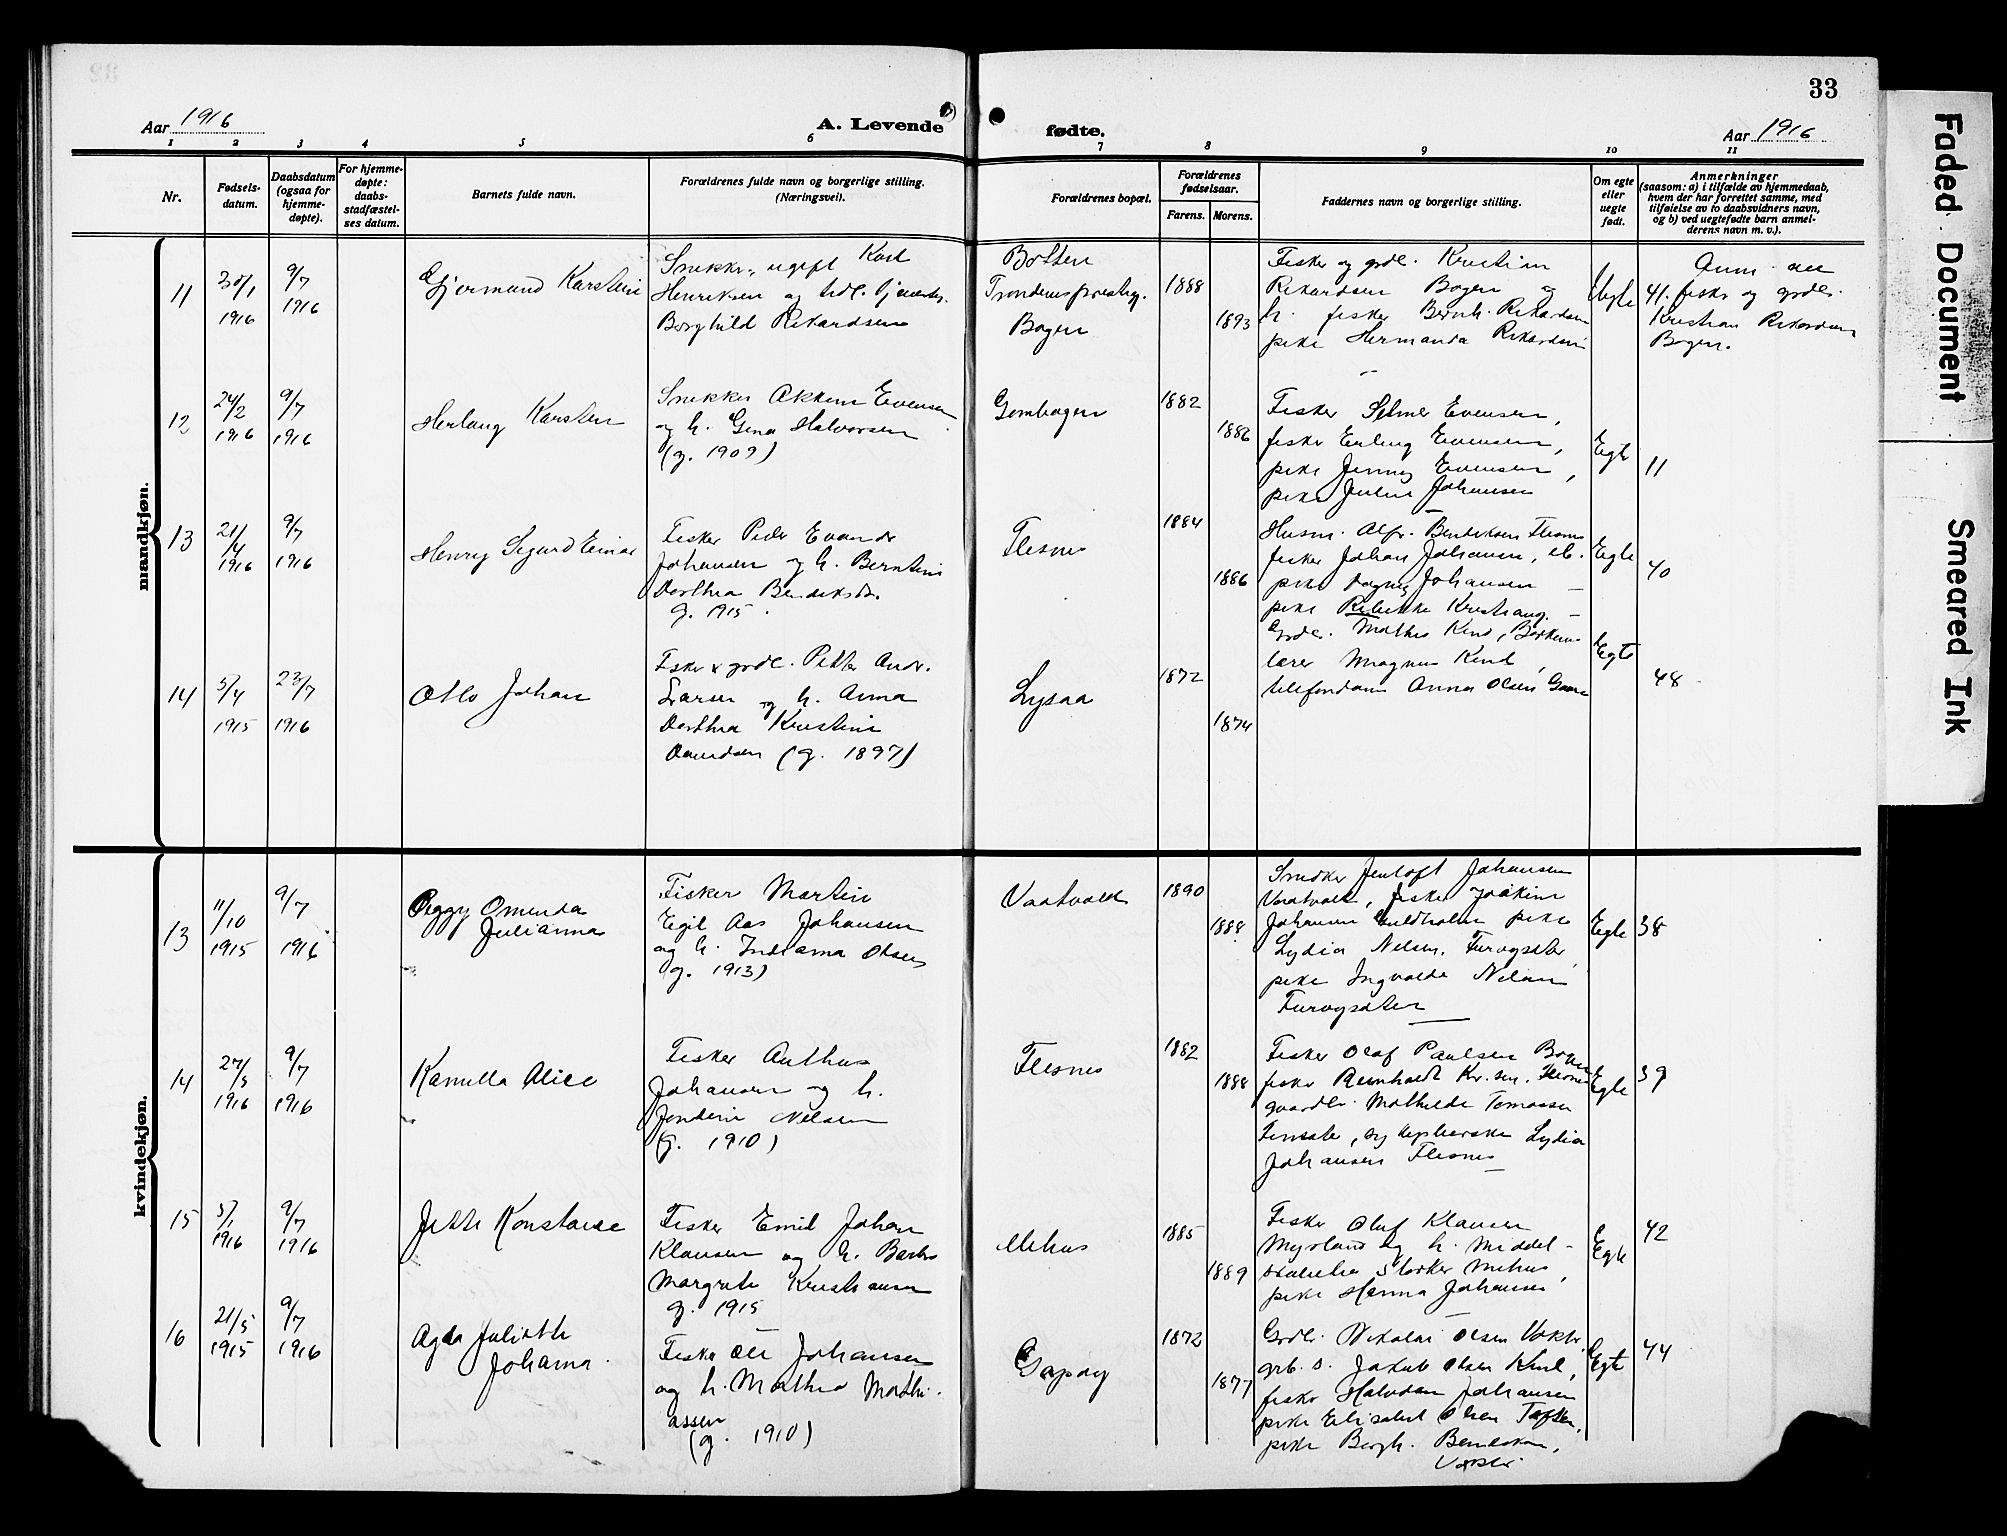 33
Aar 1916
A. Levende
fødte.
Aar 1916
1 2 3 4 5 6 7 8 9 10 11
Nr.
Fødsels-
datum.
Daabsdatum
(ogsaa for
hjemme-
døpte).
For hjemme-
døpte:
daabs-
stadfæstel-
ses datum.
Barnets fulde navn.
Forældrenes fulde navn og borgerlige stilling.
(Næringsvei).
Forældrenes bopæl.
Forældrenes
fødselsaar.
Farens. Morens.
Faddernes navn og borgerlige stilling.
Om egte
eller
uegte
født.
Anmerkninger
(saasom: a) i tilfælde av hjemmedaab,
hvem der har forrettet samme, med
tilføielse av to daabsvidners navn,
og b) ved uegtefødte barn anmel-
derens navn m. v.).
mandkjøn.
11
30/1
1916
9/7
1916
Gjermund Karstein
Snekker, ugift Karl
Henriksen og
Borghild Rikardsen
Botten
Bogen
1888
1893
Fisker og grdl. Kristian
Rikardsen Bogen og
h. fisker Bernh. Rikardsen
pike Hermanda Rikardsen
Uegte
41. fisker og grdlr.
Kristian Rikardsen
Bogen.
12
24/2
1916
9/7
1916
Herlaug Karsten
Snekker Evensen
og h. Gina Halvorsen
(g. 1909)
1882
1886
Fisker Selmer Evensen,
fisker Erling Evensen,
pike Jenny Evensen,
pike Johansen
Egte
11
13
21/4
1916
9/7
1916
Henry Sigurd Einar
Fisker Peder Evandr
Johansen og h. Berntine
Dorthea Bendiksdr.
g. 1915.
Flesnes
1884
1886
Husm. Alfr. Bendiksen Flesnes
fisker Johan Johansen, ib.
pike Dagny Johansen —
pike Kristians. —
Egte
40
14
5/4
1915
23/7
1916
Otto Johan
Fisker & grdl. Petter Andr.
Larsen og h. Anna
Dorthea Kristine
(g. 1897)
Lysaa
1872
1874
Grdlr. Mathis Kind,
lærer Magnus Kind,
telefondame Anna Olsen
Egte
48
kvindekjøn.
13
11/10
1915
9/7
1916
Peggy Omenda
Julianna
Fisker Martin
Egil Aas Johansen
og h. Indiana Olsen
(g. 1913)
Vaatvold
1890
1888
Snekker Jentoft Johansen
Vaatvold, fisker Joakim
Johansen pike
Lydia Nelsen,
pike Ingvalda Nelsen
Egte
38
14
27/3
1916
9/7
1916
Kamilla Alice
Fisker Anthus
Johansen og h.
Jondine Nelsen
(g. 1910)
Flesnes
1882
1888
Fisker Olaf Paulsen Bogen
fisker Reinholdt Kr.sen. Flesnes
gaardbr. Mathilde Tomassen
Lydia
Johansen Flesnes
Egte
39
15
5/1
1916
9/7
1916
Jette Konstanse
Fisker Emil Johan
Klausen og h.
Margrete Kristiansen
g. 1915
Mehus
1885
1889
Fisker Oluf Klausen
Myrland og h. Middel-
Mehus,
pike Hanna Johansen
Egte
42
16
21/5
1915
9/7
1916
Agda Juliette
Johanna.
Fisker Johansen
og h. Mathea Mathi-
assen
(g. 1910)
Gapøy
1872
1877
Grdlr. Nikolai Olsen
grb. s. Jakob Olsen Kind,
fisker Halvdan Johansen
pike Elisabet Olsen
pike Bergh. Bendiksen,
Egte
44
Faded Document
Smeared Ink